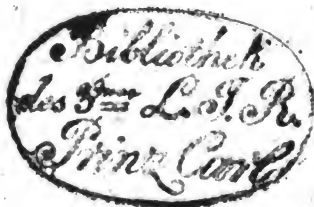 Bibliothek
des L. I. R.
Prinz Carl